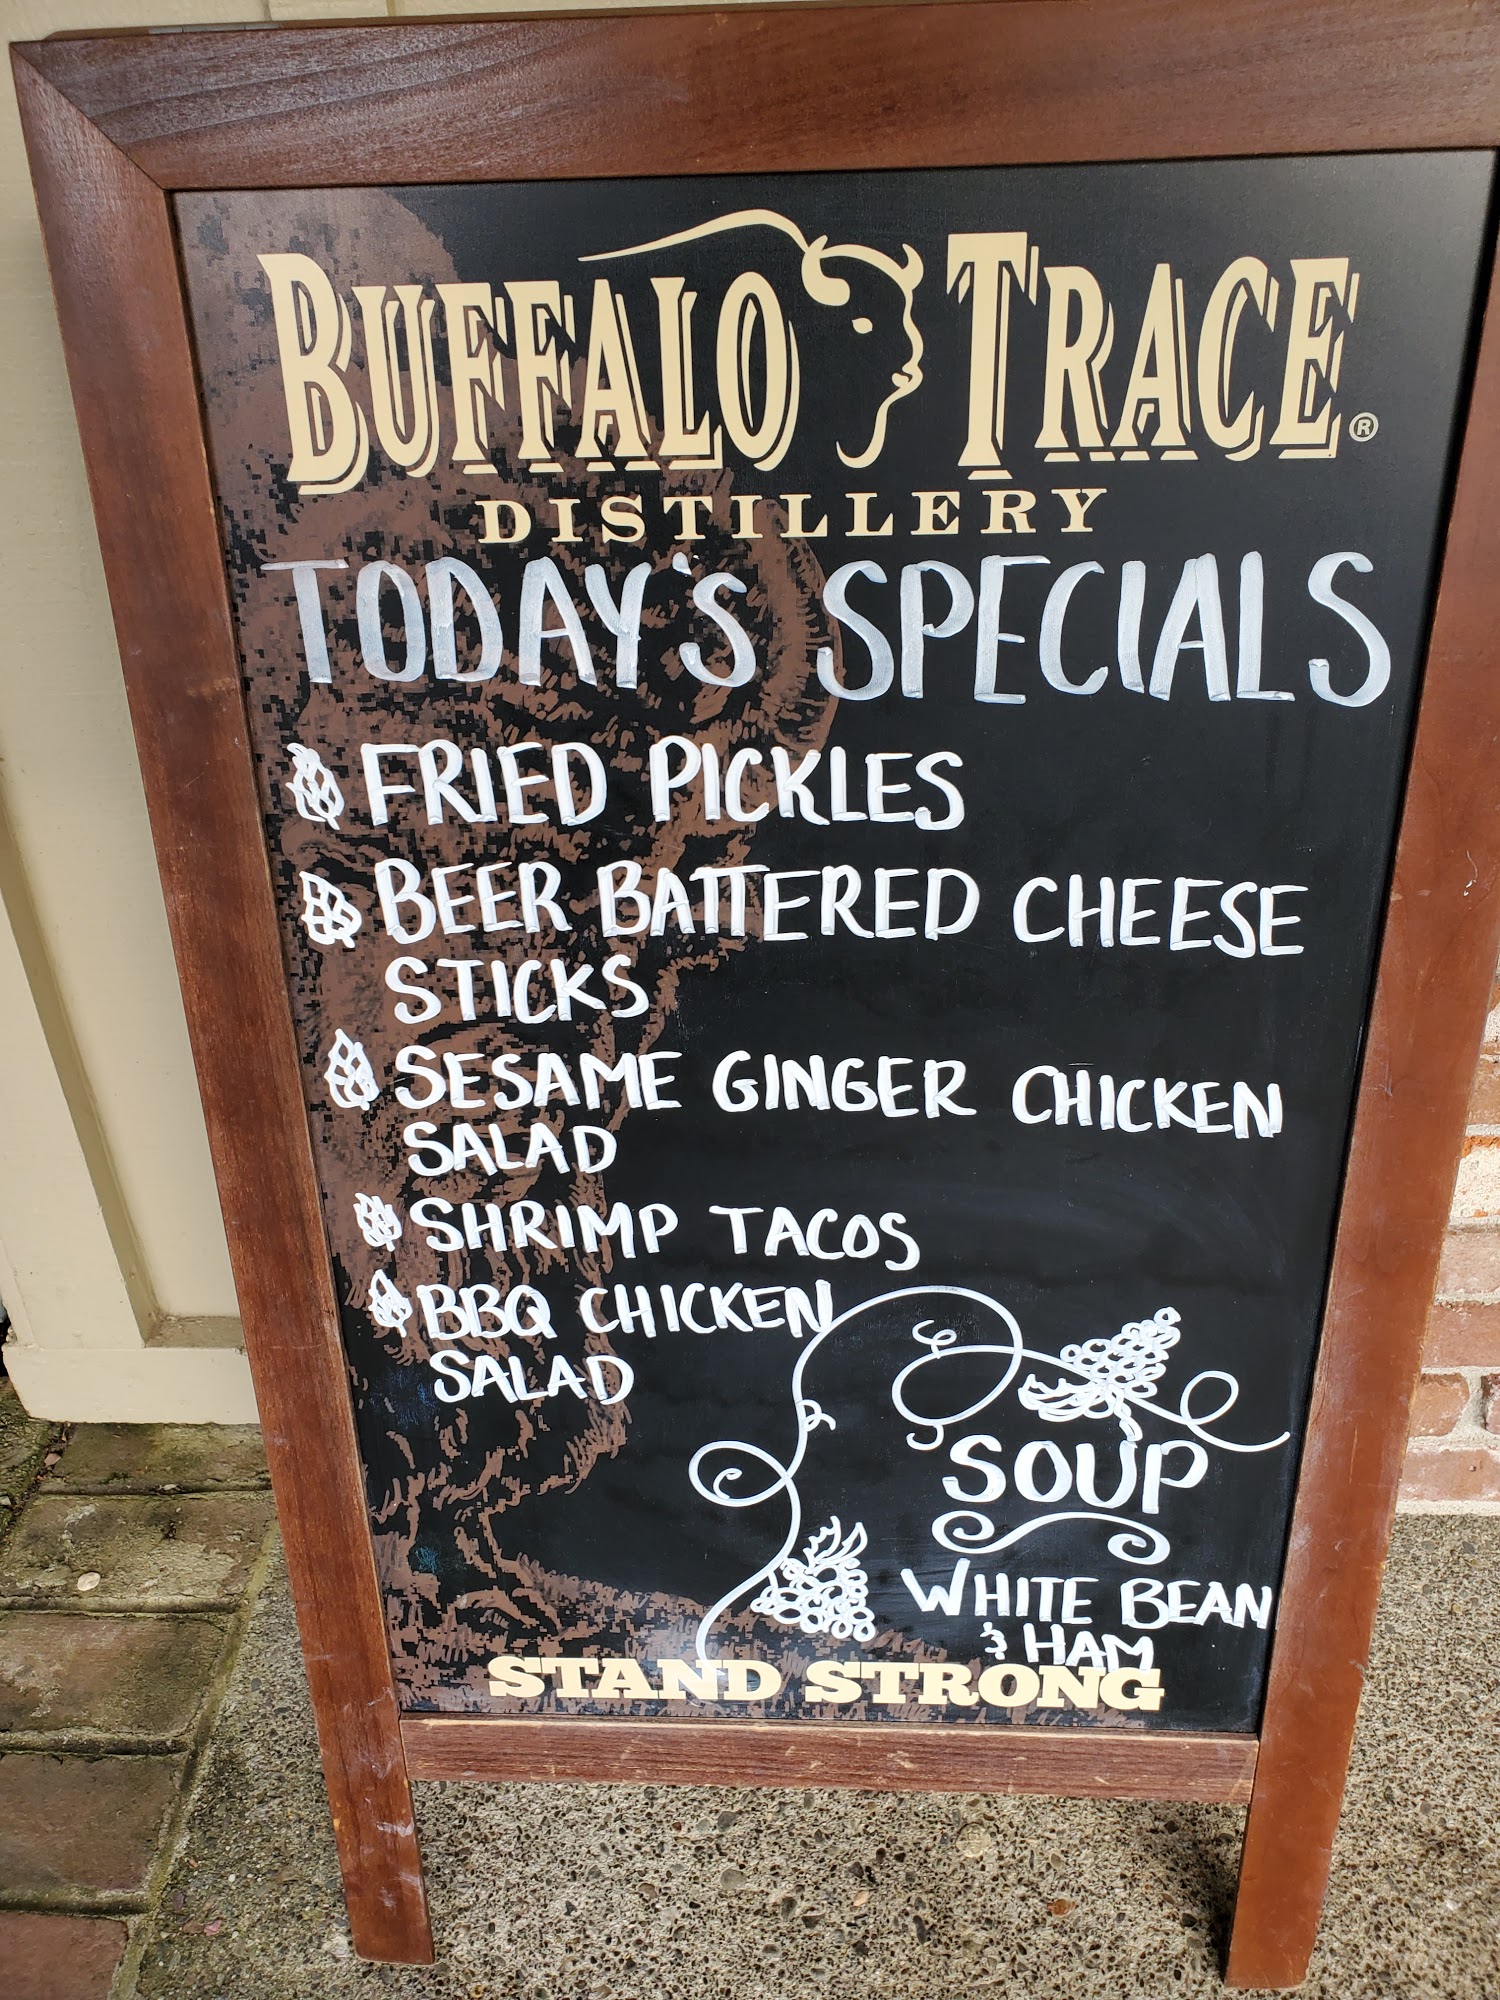 BUFFALO TRACE®
DISTILLERY
TODAY'S SPECIALS
FRIED PICKLES
BEER BATTERED CHEESE
STICKS
SESAME GINGER CHICKEN
SALAD
SHRIMP TACOS
BBQ CHICKEN
SALAD
SOUP
WHITE BEAN
& HAM
STAND STRONG